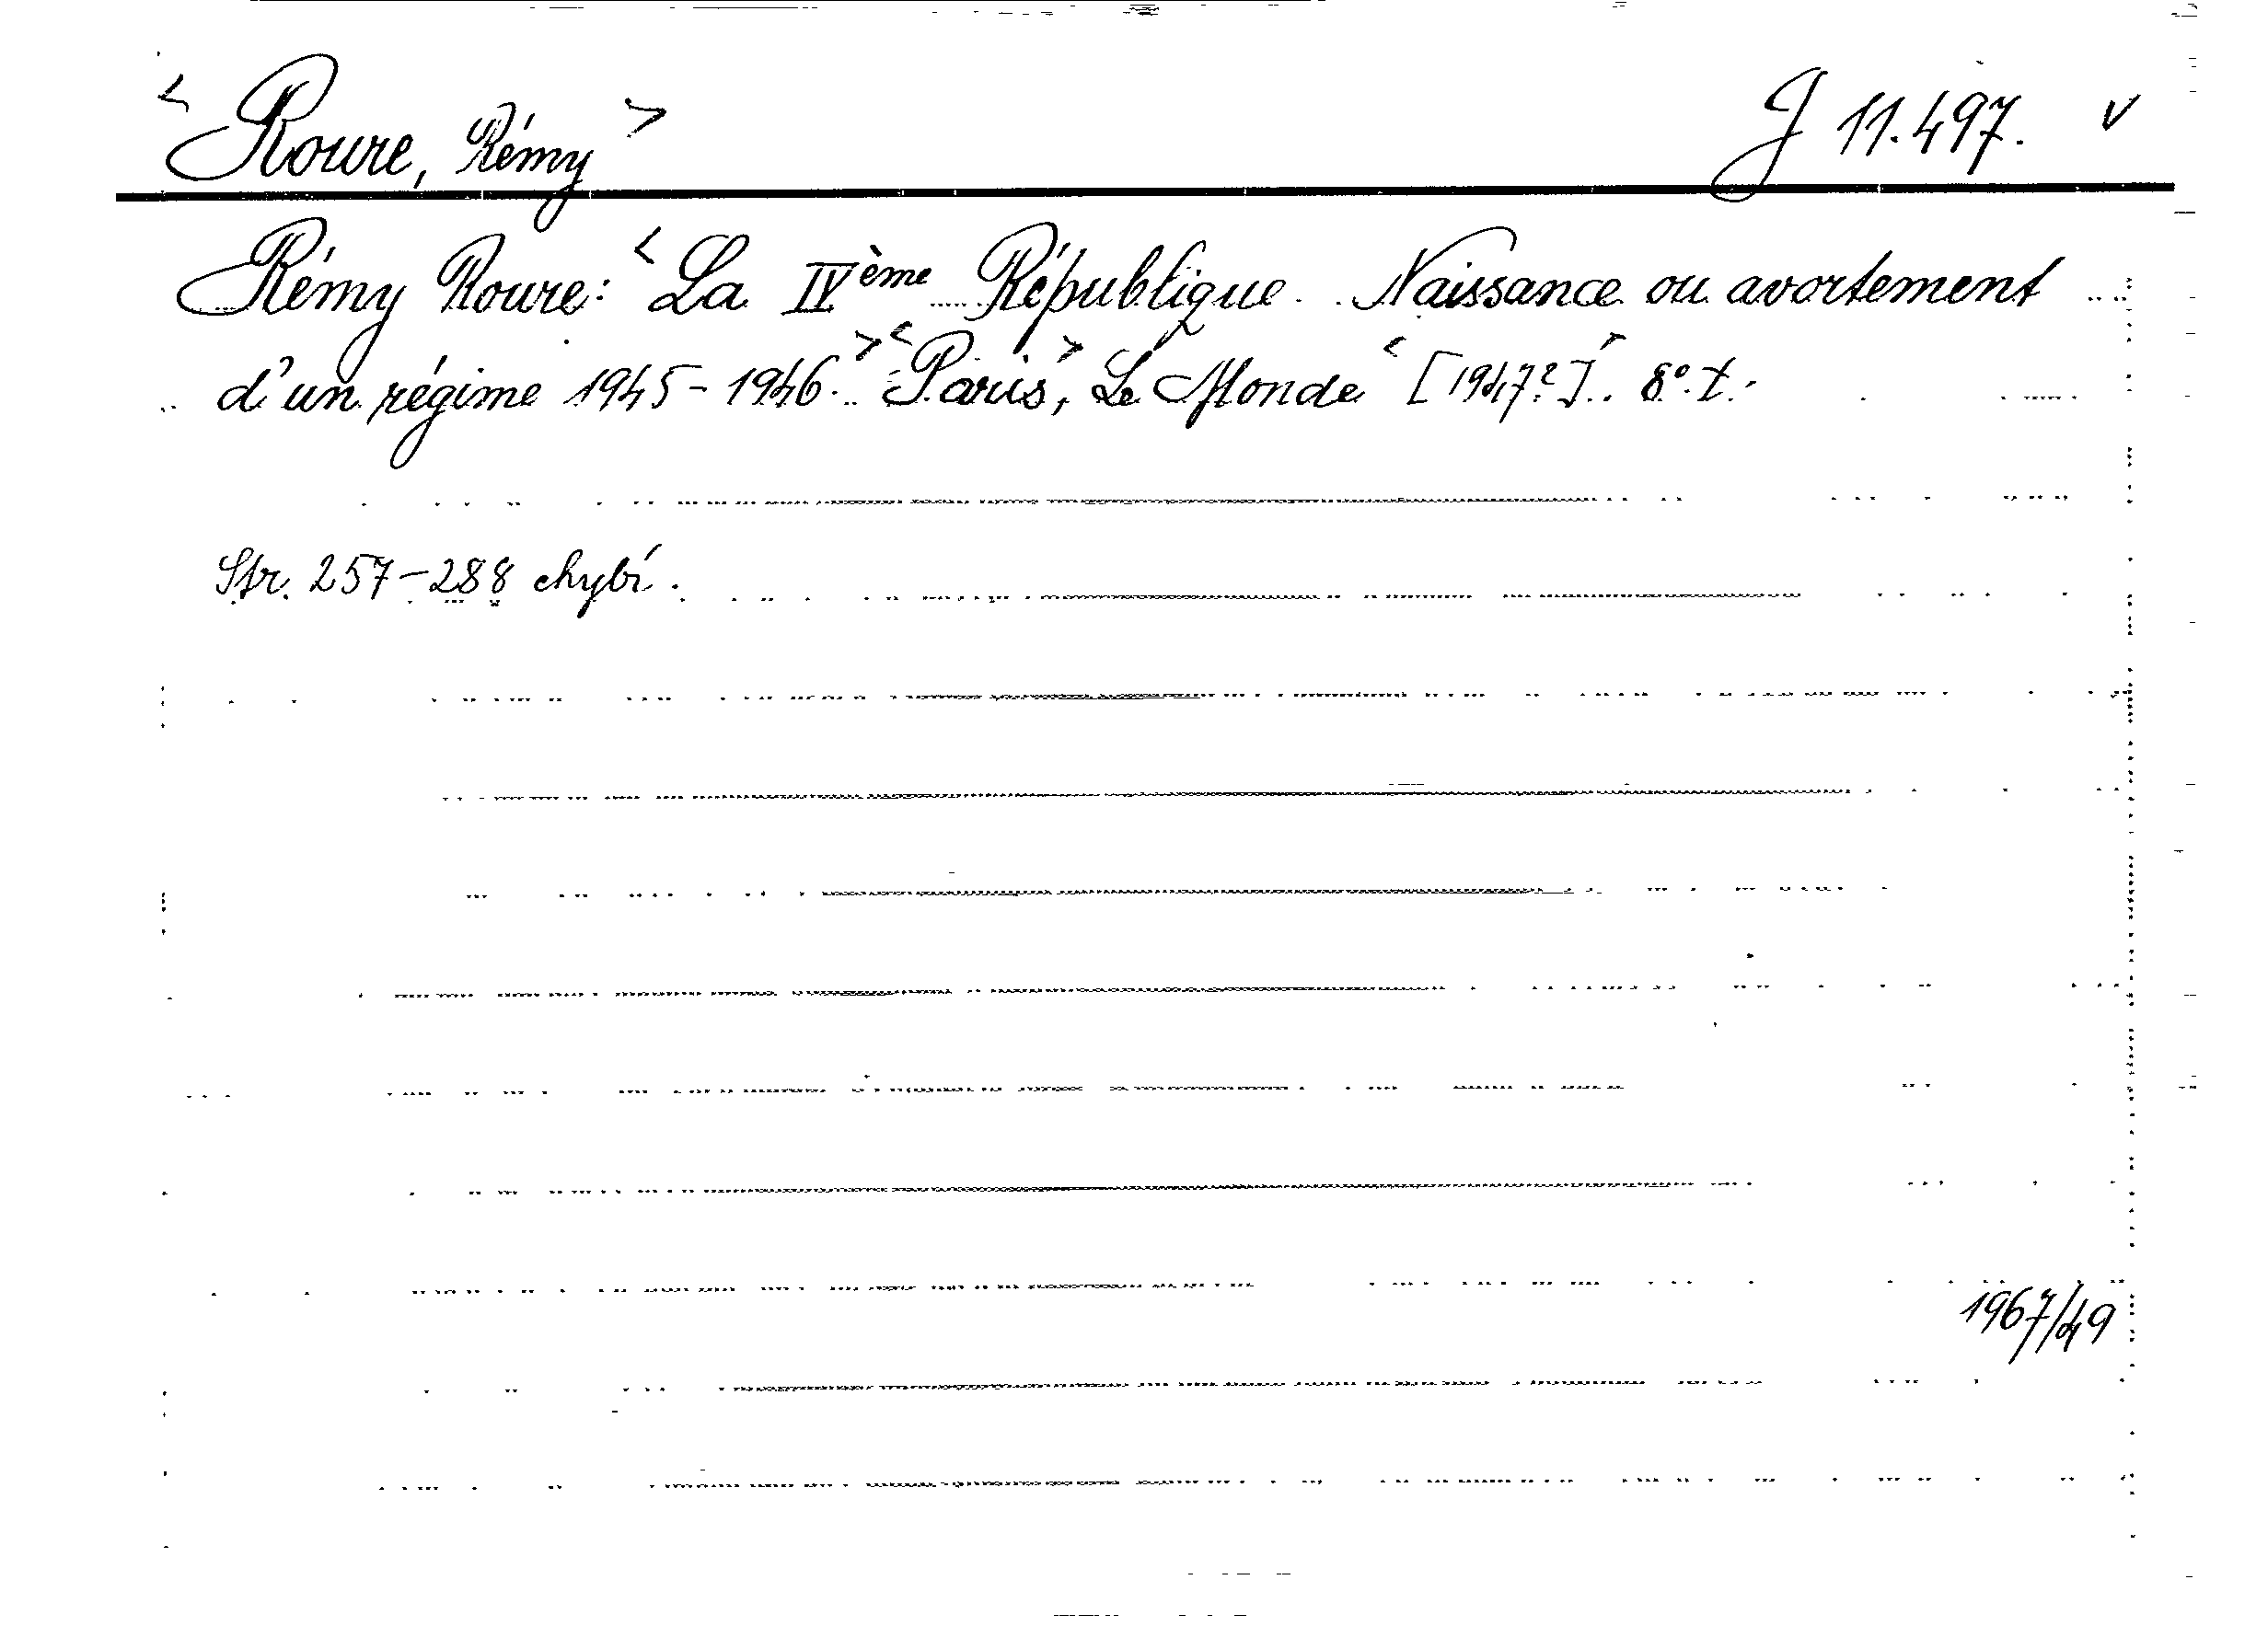 < Roure, Rémy > J 11.497. v
Rémy Roure: < La IVème République. Naissance ou avortement
d'un régime 1945-1946. > < Paris >, Le Monde < [1947?] >. 8°. t.
Str. 257-288 chybí.
1967/49